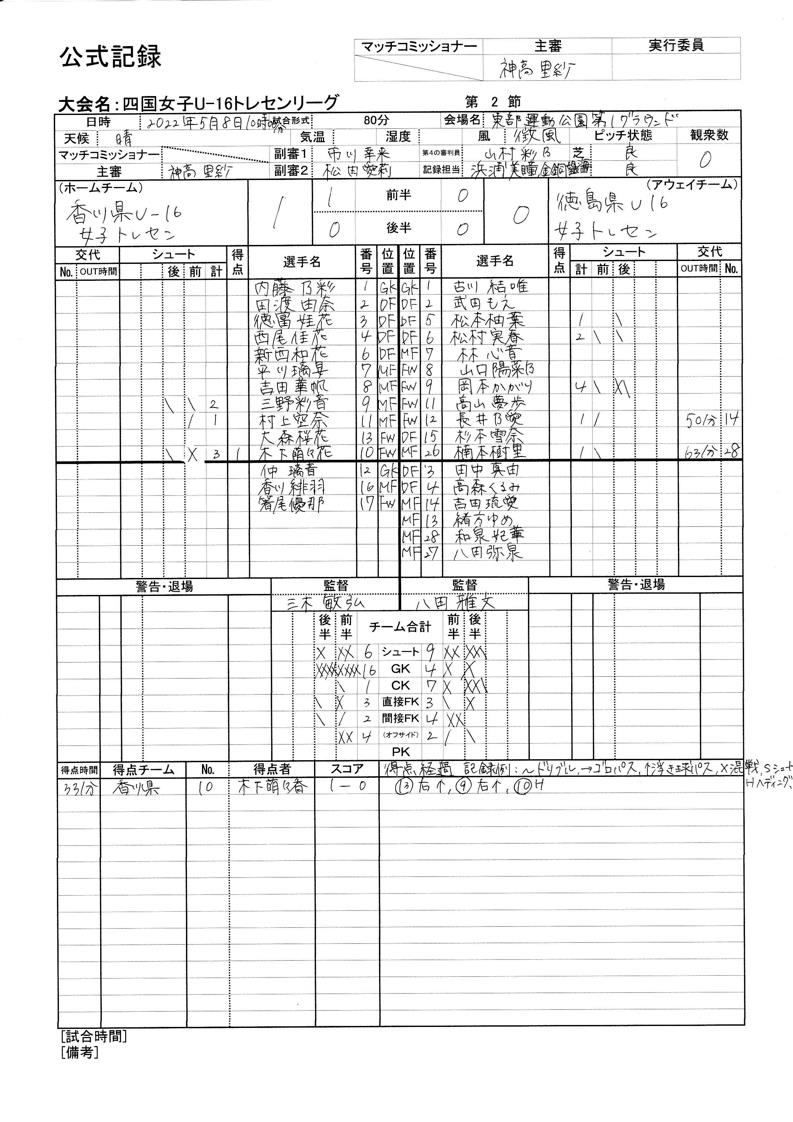 公式記録
マッチコミッショナー 主審 実行委員
神高 里紗
大会名：四国女子U-16トレセンリーグ 第 2 節
日時 2022年5月8日10時 分 試合形式 80分 会場名 東部運動公園第1グラウンド
天候 晴 気温 湿度 風 微風 ピッチ状態 観衆数
マッチコミッショナー 副審1 市川 幸来 第4の審判員 山村 彩乃 芝 良 0
主審 神高 里紗 副審2 松田 愛莉 記録担当 良
(ホームチーム) (アウェイチーム)
香川県U-16 女子トレセン 1 1 前半 0 0 徳島県U16 女子トレセン
0 後半 0
交代 シュート 得点 選手名 番号 位置 位置 番号 選手名 得点 シュート 交代
No. OUT時間 後 前 計 計 前 後 OUT時間 No.
内藤 乃彩 1 GK GK 1 古川 結唯
田渡 由奈 2 DF DF 2 武田もえ
徳富 娃花 3 DF DF 5 松本柚葉 1 \
西尾佳花 4 DF DF 6 松村実春 2 \ \
新西和花 6 DF MF 7 林 心音
平川璃昊 7 MF FW 8 山口陽菜乃
吉田華帆 8 MF FW 9 岡本かがり 4 \ X\
\ \ 2 三野彩音 9 MF FW 11 髙山夢歩
/ 1 村上空奈 11 MF FW 12 長井乃愛 1 / 50分 14
大森桜花 13 FW DF 15 杉本雪奈
\ X 3 1 木下萌乃花 10 FW MF 26 楠本樹里 1 \ 63分 28
仲 璃音 12 GK DF 3 田中真由
香川緋羽 16 MF DF 4 高森くるみ
箸尾優那 17 FW MF 14 吉田琉愛
MF 13 緒方ゆめ
MF 28 和泉妃華
MF 27 八田弥泉
警告・退場 監督 監督 警告・退場
三木 敏弘 八田 雅文
後半 前半 チーム合計 前半 後半
X XX 6 シュート 9 XX XX\
XXXX XXXX 16 GK 4 X X
\ 1 CK 7 X XX\
\ X 3 直接FK 3 \ X
\ / 2 間接FK 4 XX
XX 4 (オフサイド) 2 / \
PK
得点時間 得点チーム No. 得点者 スコア 得点経過 記録例：～ドリブル,→ゴロパス,↑浮き球パス,X混戦,Sシュート
Hヘディング、
33分 香川県 10 木下萌乃香 1-0 ⑬右↑,⑨右↑,⑩H
[試合時間]
[備考]